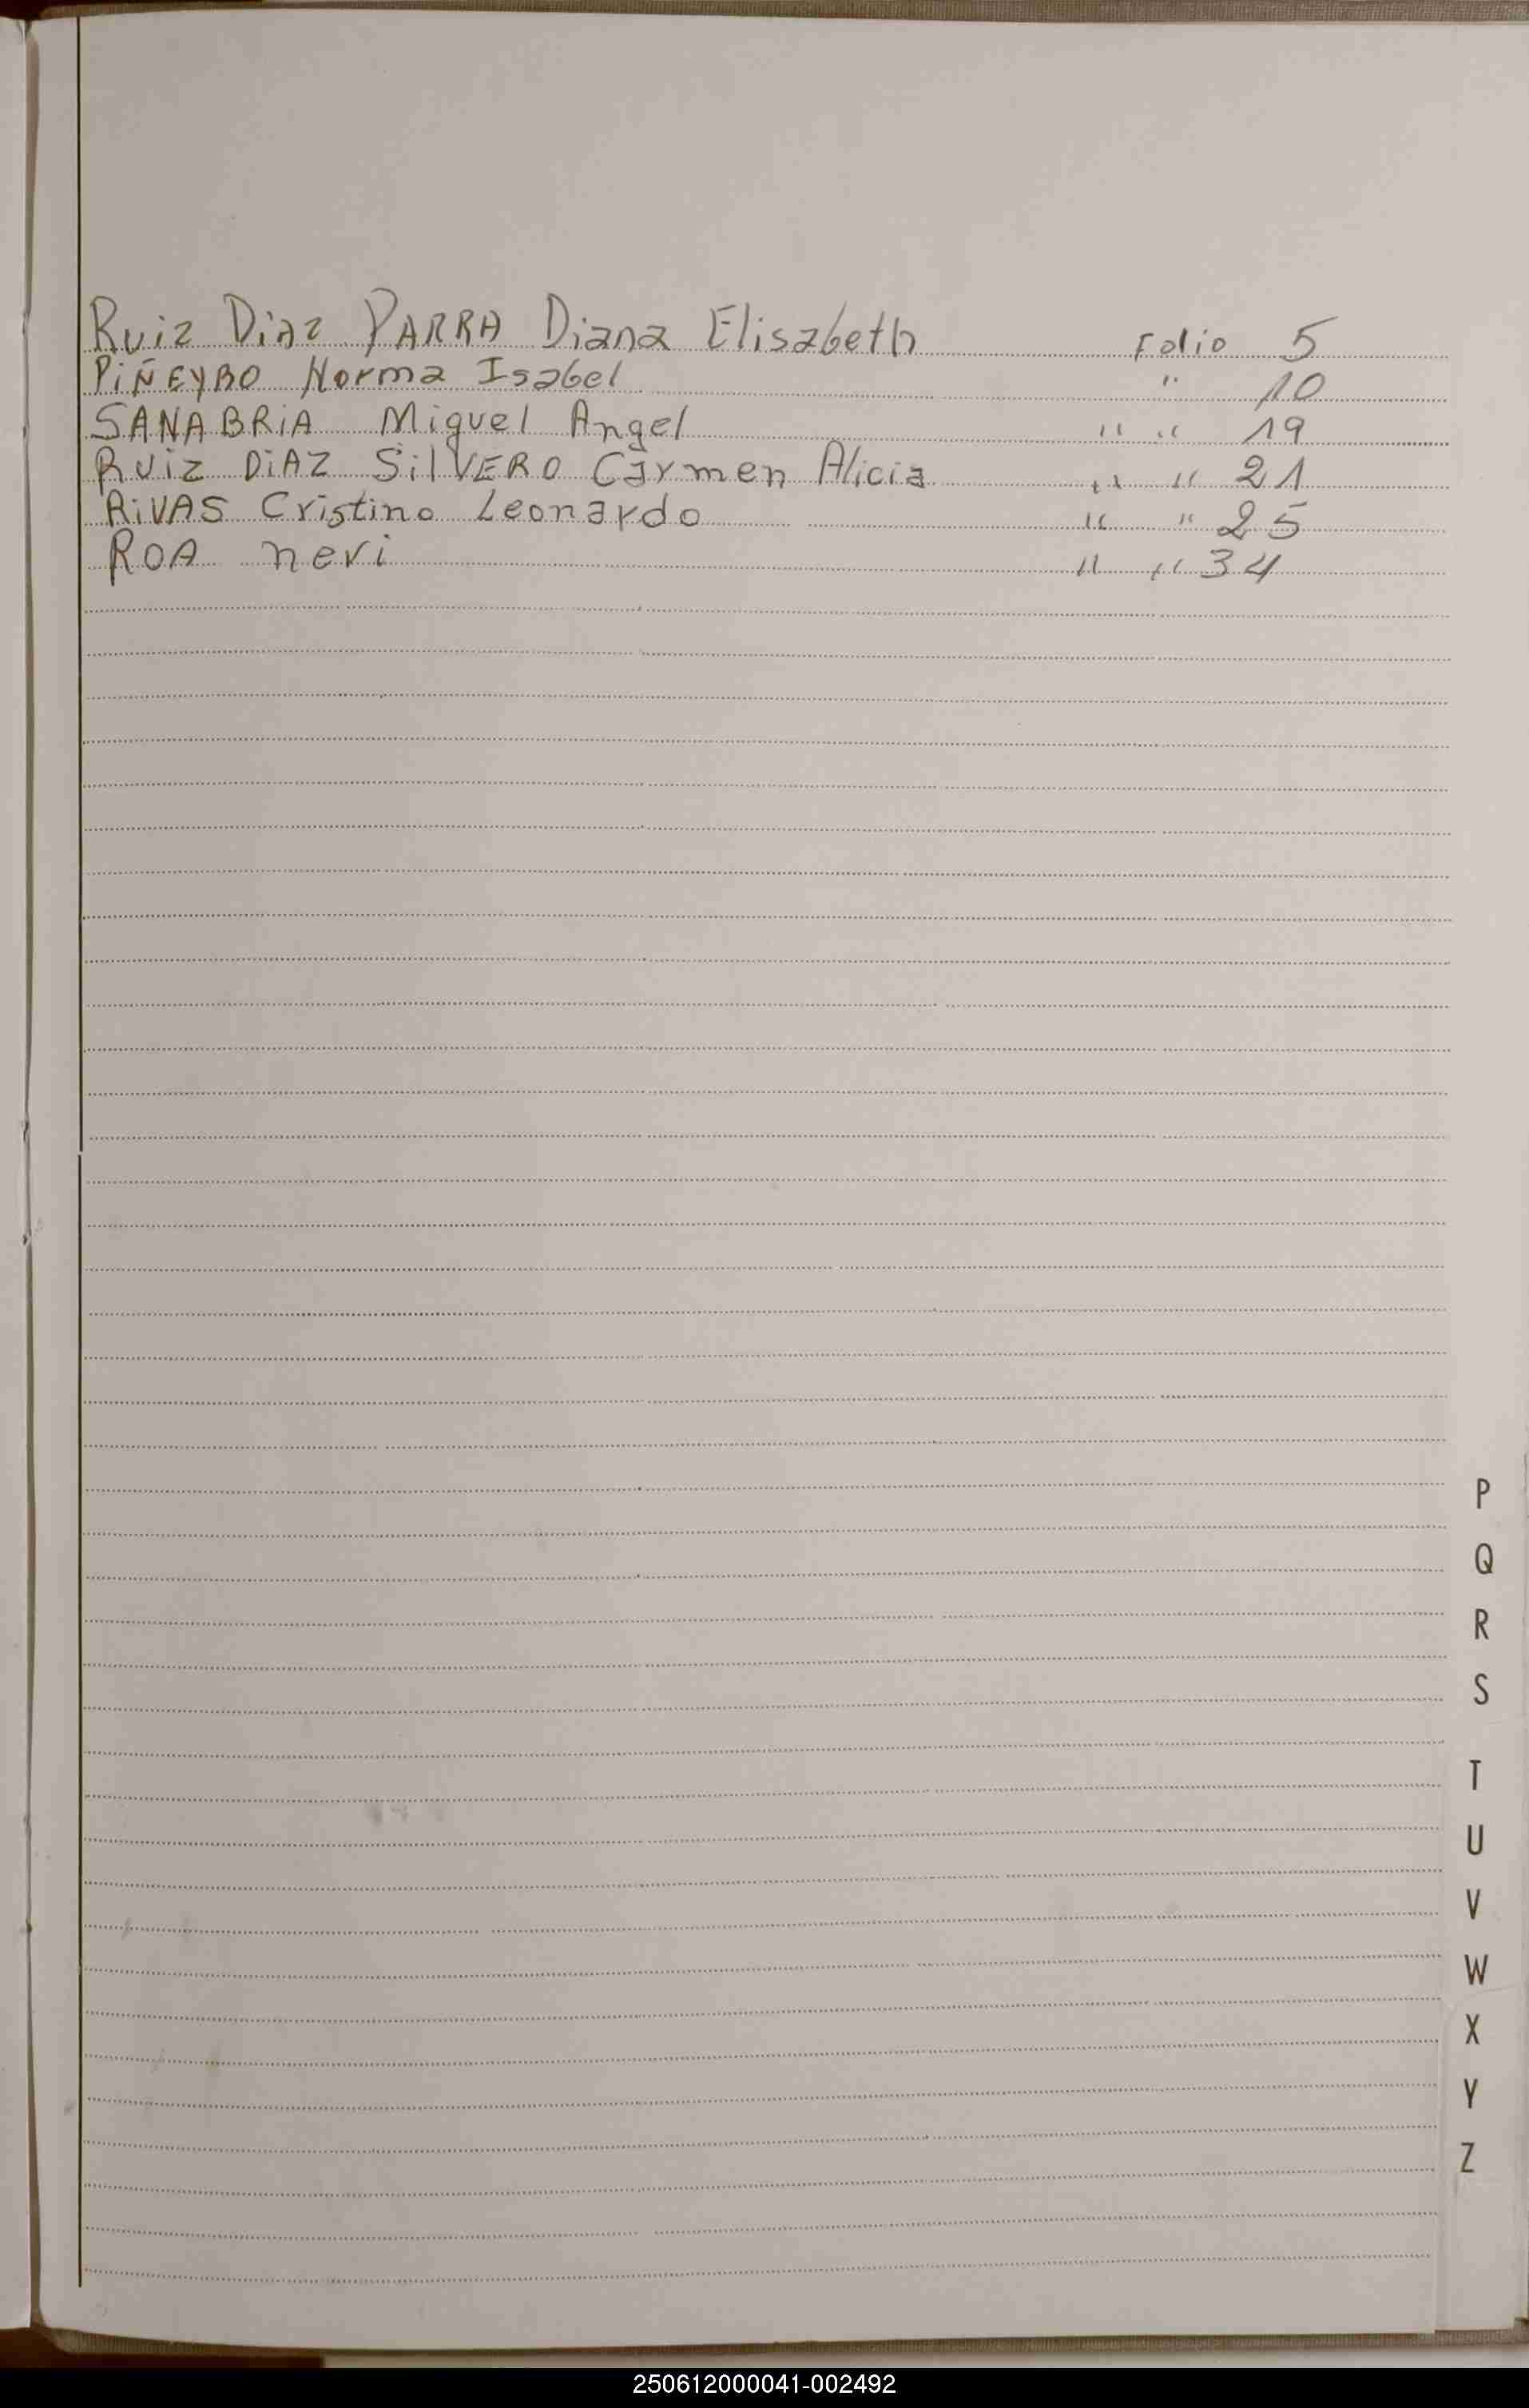 Ruiz Diaz PARRA Diana Elisabeth Folio 5
PIÑEYRO Norma Isabel " 10
SANABRIA Miguel Angel " " 19
RUIZ DIAZ SILVERO Carmen Alicia " " 21
RIVAS Cristino Leonardo " " 25
ROA neri " " 34
P
Q
R
S
T
U
V
W
X
Y
Z
250612000041-002492